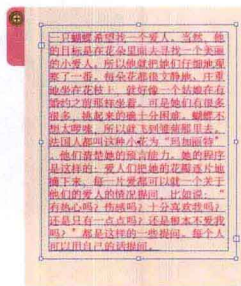 一只蝴蝶希望找一个爱人。当然，他
的目标是在花朵里面去寻找一个美丽
的小爱人。所以他就把她们仔细地观
察了一番。每朵花都很文静地、庄重
地坐在花枝上，就好像一个姑娘在有
婚约之前那样坐着。可是她们有很多
很多，挑起来的确十分困难。蝴蝶不
想太啰嗦，所以就飞到雏菊那里去。
法国人都叫这种小花为“玛加丽特”
，他们清楚她的预言能力。她的程序
是这样的：爱人们把她的花瓣逐片地
摘下来，每一片爱都可以就一个关于
他们的爱人的情况提问，比如说：“
有热心吗？伤感吗？十分喜欢我吗？
还是只有一点点吗？还是根本不爱我
吗？”都是这样的一些提问。每个人
可以用自己的话提问。